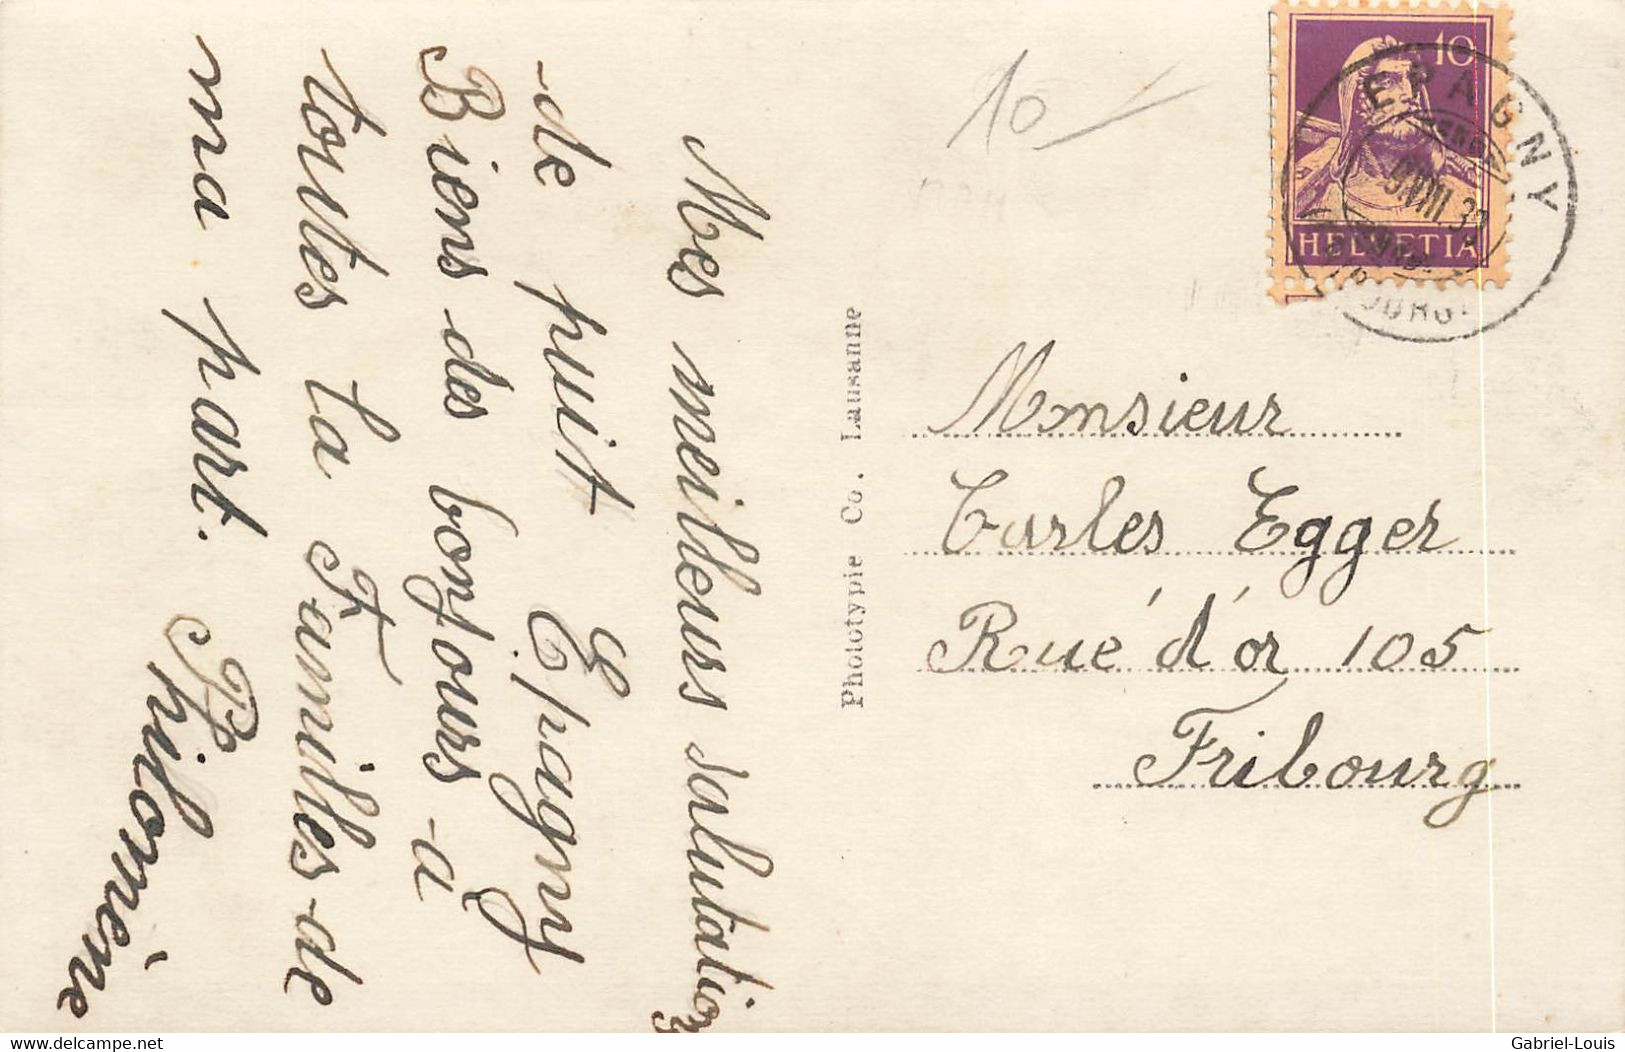 Mes meilleurs salutation
de puit Epagny
Biens des bonjours a
toutes la Familles de
ma part.
Philomène
Phototypie Co. Lausanne
10
10
HELVETIA
EPAGNY
Monsieur
Carles Egger
Rué d'or 105
Fribourg
www.delcampe.net
Gabriel-Louis